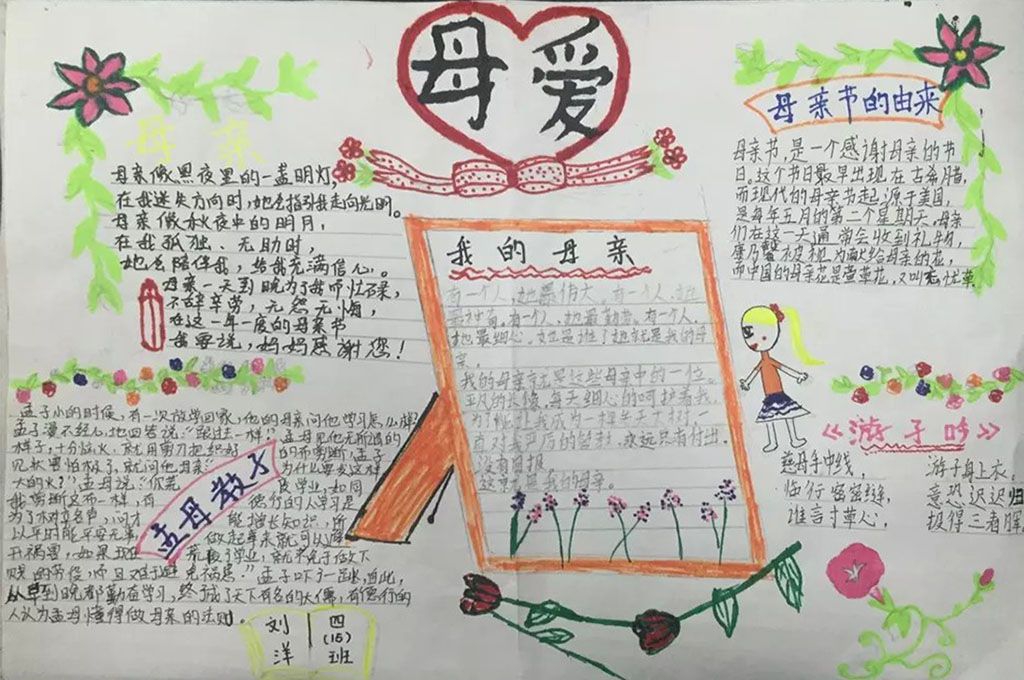 母爱
母亲
母亲像黑夜里的一盏明灯,
在我迷失方向时,她会指引我走向光明。
母亲像秋夜中的明月,
在我孤独、无助时,
她会陪伴我,给我充满信心。
母亲一天到晚为了我们忙碌,
不辞辛劳,无怨无悔,
在这一年一度的母亲节
我要说,妈妈感谢您!
母亲节的由来
母亲节,是一个感谢母亲的节
日。这个节日最早出现在古希腊,
而现代的母亲节起源于美国,
是每年五月的第二个星期天,母亲
们在这一天通常会收到礼物,
康乃馨被视为献给母亲的花,
而中国的母亲花是萱草花,又叫忘忧草。
我的母亲
有一个人,她最伟大。有一个人,她
最勤劳。有一个人,
她最细心。她是谁?她就是我的母
亲。
我的母亲就是这些母亲中的一位。
平凡的长像,每天细心的呵护着我,
永远只有付出,
没有回报。
这就是我的母亲。
孟母教子
孟子小的时候,有一次放学回家,他的母亲问他学习怎么样
孟子漫不经心地回答说:“跟过去一样”孟母见他无所谓的
样子,十分恼火,就用剪刀把织好的布剪断,孟子
见状害怕极了,就问他母亲:为什么要发这样
大的火?”孟母说:“你荒废学业,如同
我剪断这布一样,有德行的人学习是
为了树立名声,问才能增长知识,所
以平时能平安无事,做起事来就可以避
开祸害,如果现在荒废了学业,就不免于做下
贱的劳役,而且难于避免祸患。”孟子吓了一跳,自此,
从早到晚都勤奋学习,终成了天下有名的大儒,有德行的
人认为孟母懂得做母亲的法则。
刘洋
四(15)班
《游子吟》
慈母手中线, 游子身上衣,
临行密密缝, 意恐迟迟归
谁言寸草心, 报得三春晖